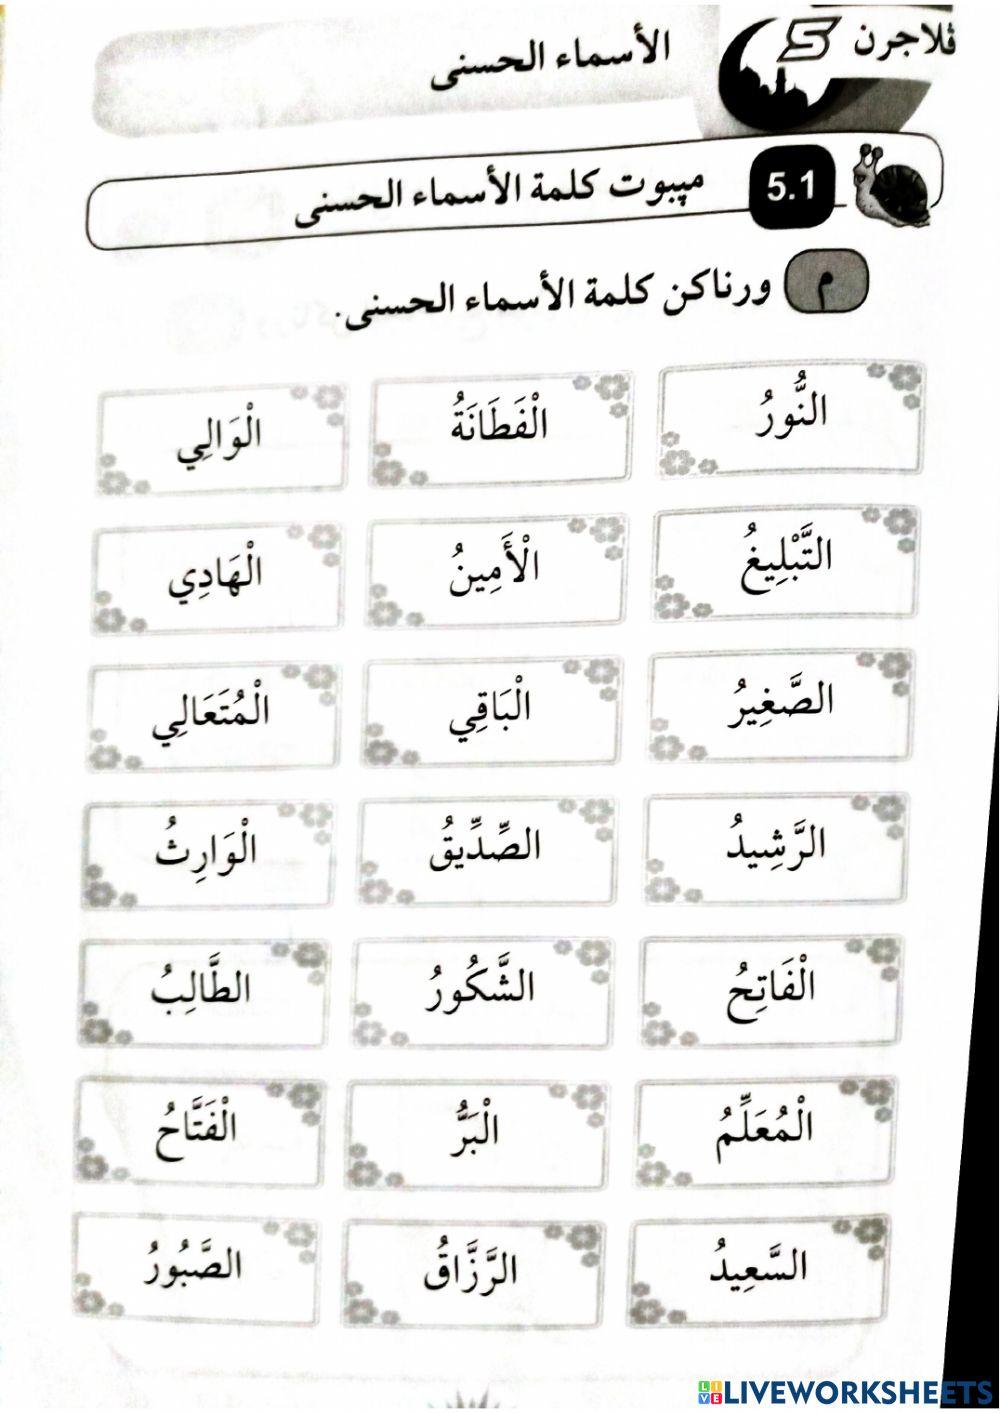 ڤلاجرن 5
الأسماء الحسنى
5.1 مڽبوت كلمة الأسماء الحسنى
م ورناكن كلمة الأسماء الحسنى.
النُّورُ الْفَطَانَةُ الْوَالِي
التَّبْلِيغُ الْأَمِينُ الْهَادِي
الصَّغِيرُ الْبَاقِي الْمُتَعَالِي
الرَّشِيدُ الصِّدِّيقُ الْوَارِثُ
الْفَاتِحُ الشَّكُورُ الطَّالِبُ
الْمُعَلِّمُ الْبَرُّ الْفَتَّاحُ
السَّعِيدُ الرَّزَّاقُ الصَّبُورُ
LIVEWORKSHEETS